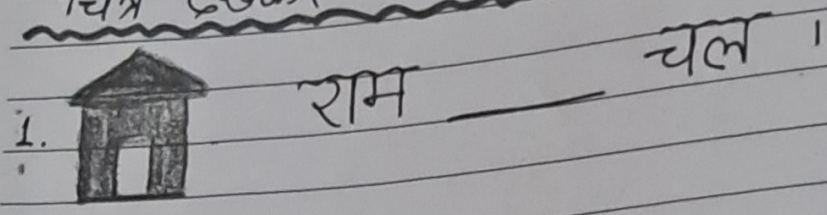 चित्र
1. राम ____ चल ।